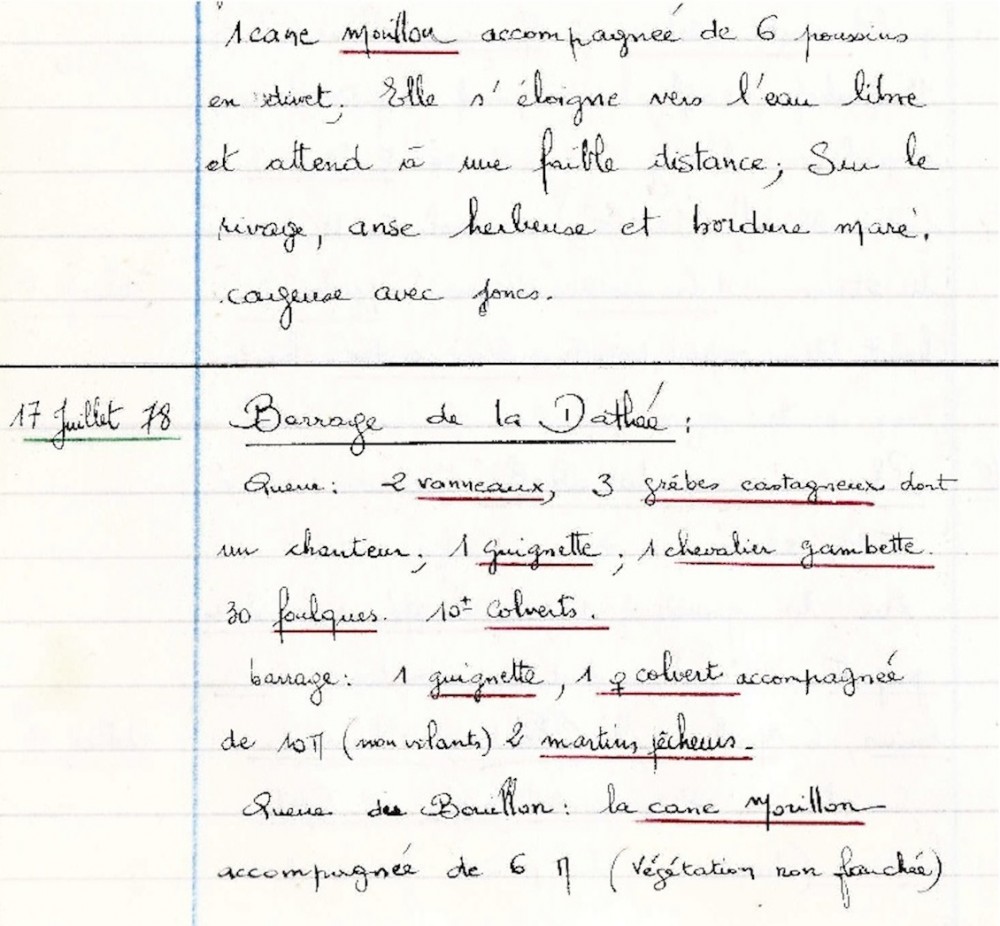 1 cane morillon accompagnée de 6 poussins
en duvet. Elle s'éloigne vers l'eau libre
et attend à une faible distance; Sur le
rivage, anse herbeuse et bordure maré.
cageuse avec joncs.
17 Juillet 78 Barrage de la Dathée :
Queue : 2 vanneaux, 3 grèbes castagneux dont
un chanteur; 1 guignette; 1 chevalier gambette.
30 foulques. 10± colverts.
barrage : 1 guignette, 1 ♀ colvert accompagnée
de 10 π (non volants) 2 martins pêcheurs.
Queue du Bouillon : la cane Morillon
accompagnée de 6 π (végétation non fauchée)